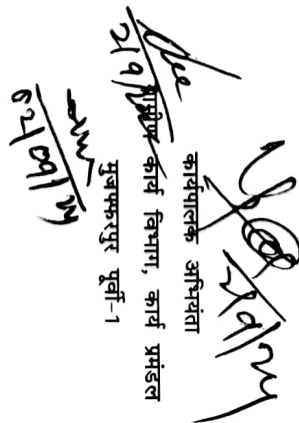 कार्यपालक अभियंता
ग्रामीण कार्य विभाग, कार्य प्रमंडल
मुजफ्फरपुर पूर्वी-1
02/09/24